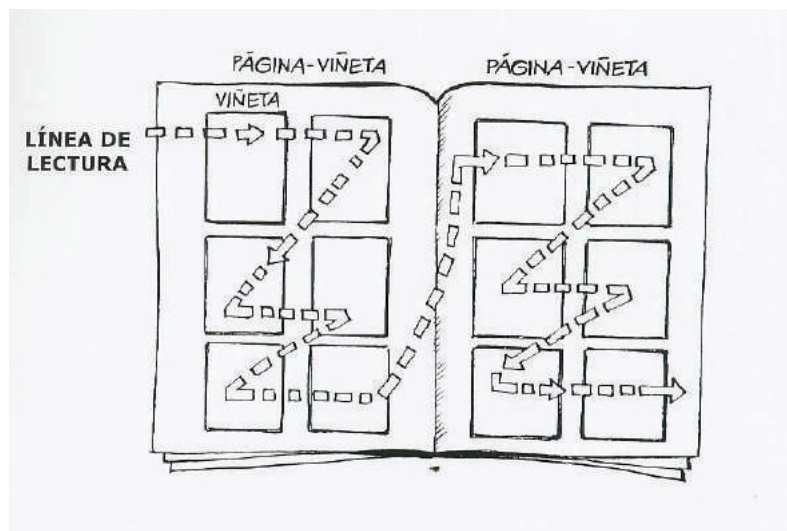 PÁGINA-VIÑETA
PÁGINA-VIÑETA
VIÑETA
LÍNEA DE
LECTURA